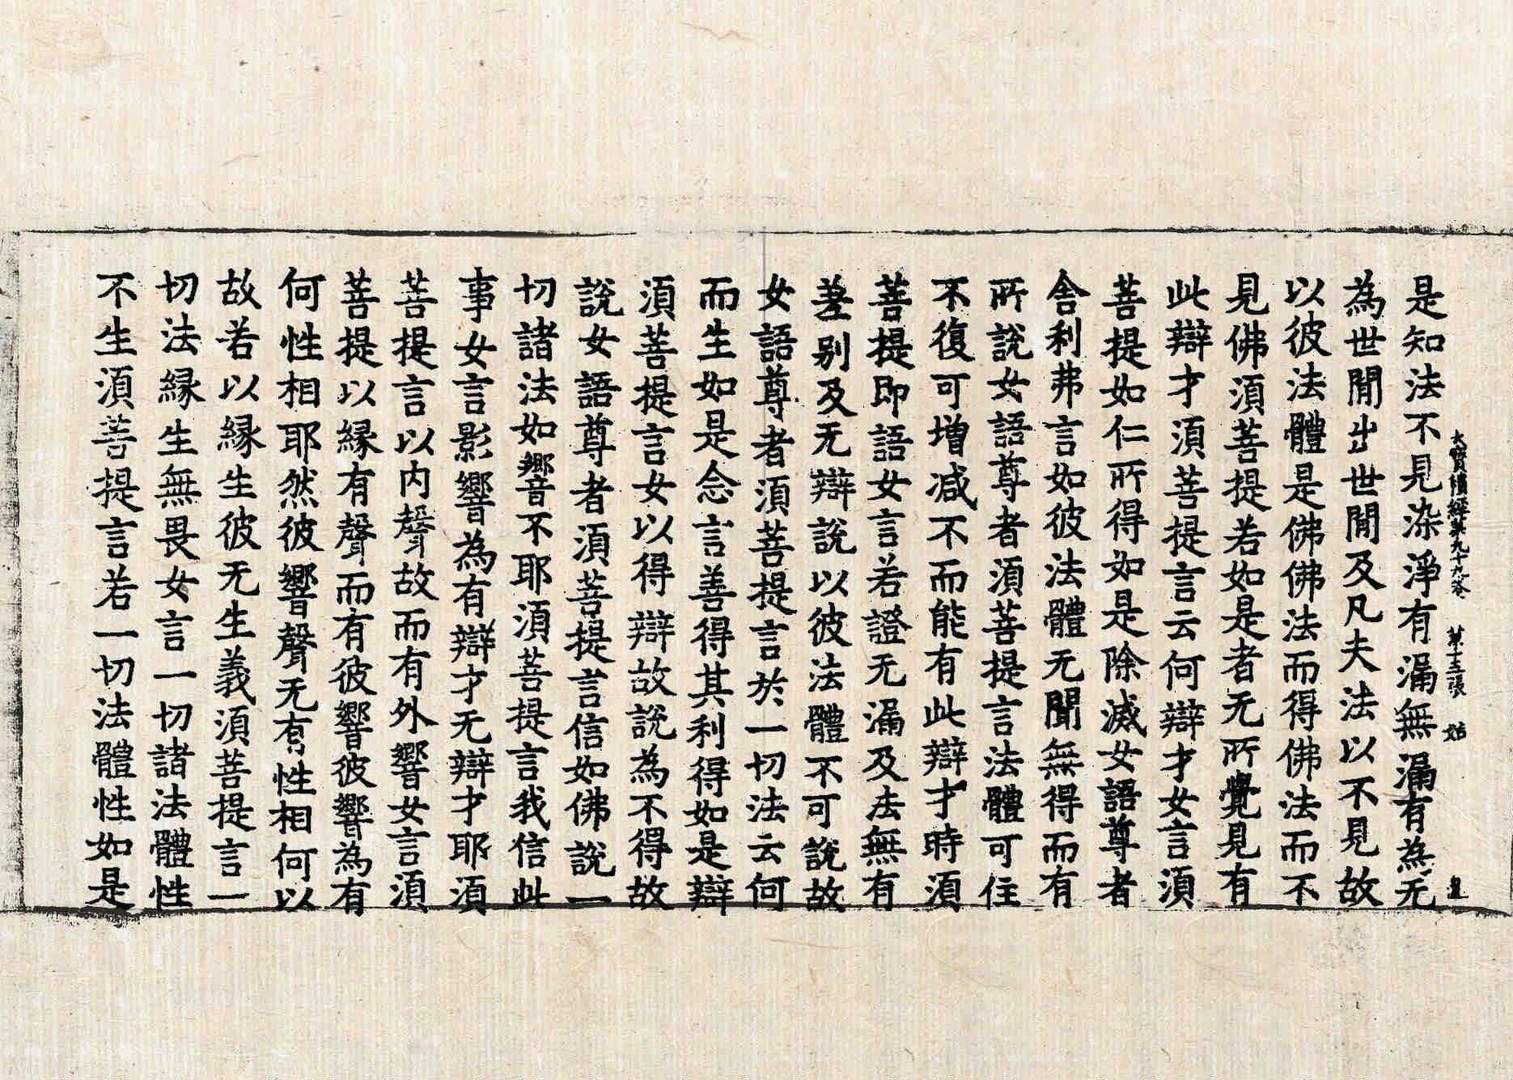 大寶積經第九十九卷　第十三張　始
是知法不見染淨有漏無漏有為无
為世間出世間及凡夫法以不見故
以彼法體是佛佛法而得佛法而不
見佛須菩提若如是者无所覺見有
此辯才須菩提言云何辯才女言須
菩提如仁所得如是除滅女語尊者
舍利弗言如彼法體无聞無得而有
所說女語尊者須菩提言法體可住
不復可增减不而能有此辯才時須
菩提即語女言若證无漏及法無有
差別及无辯說以彼法體不可說故
女語尊者須菩提言於一切法云何
而生如是念言善得其利得如是辯
須菩提言女以得辯故說為不得故
說女語尊者須菩提言信如佛說一
切諸法如響不耶須菩提言我信此
事女言影響為有辯才无辯才耶須
菩提言以内聲故而有外響女言須
菩提以緣有聲而有彼響彼響為有
何性相耶然彼響聲无有性相何以
故若以緣生彼无生義須菩提言一
切法緣生無畏女言一切諸法體性
不生須菩提言若一切法體性如是